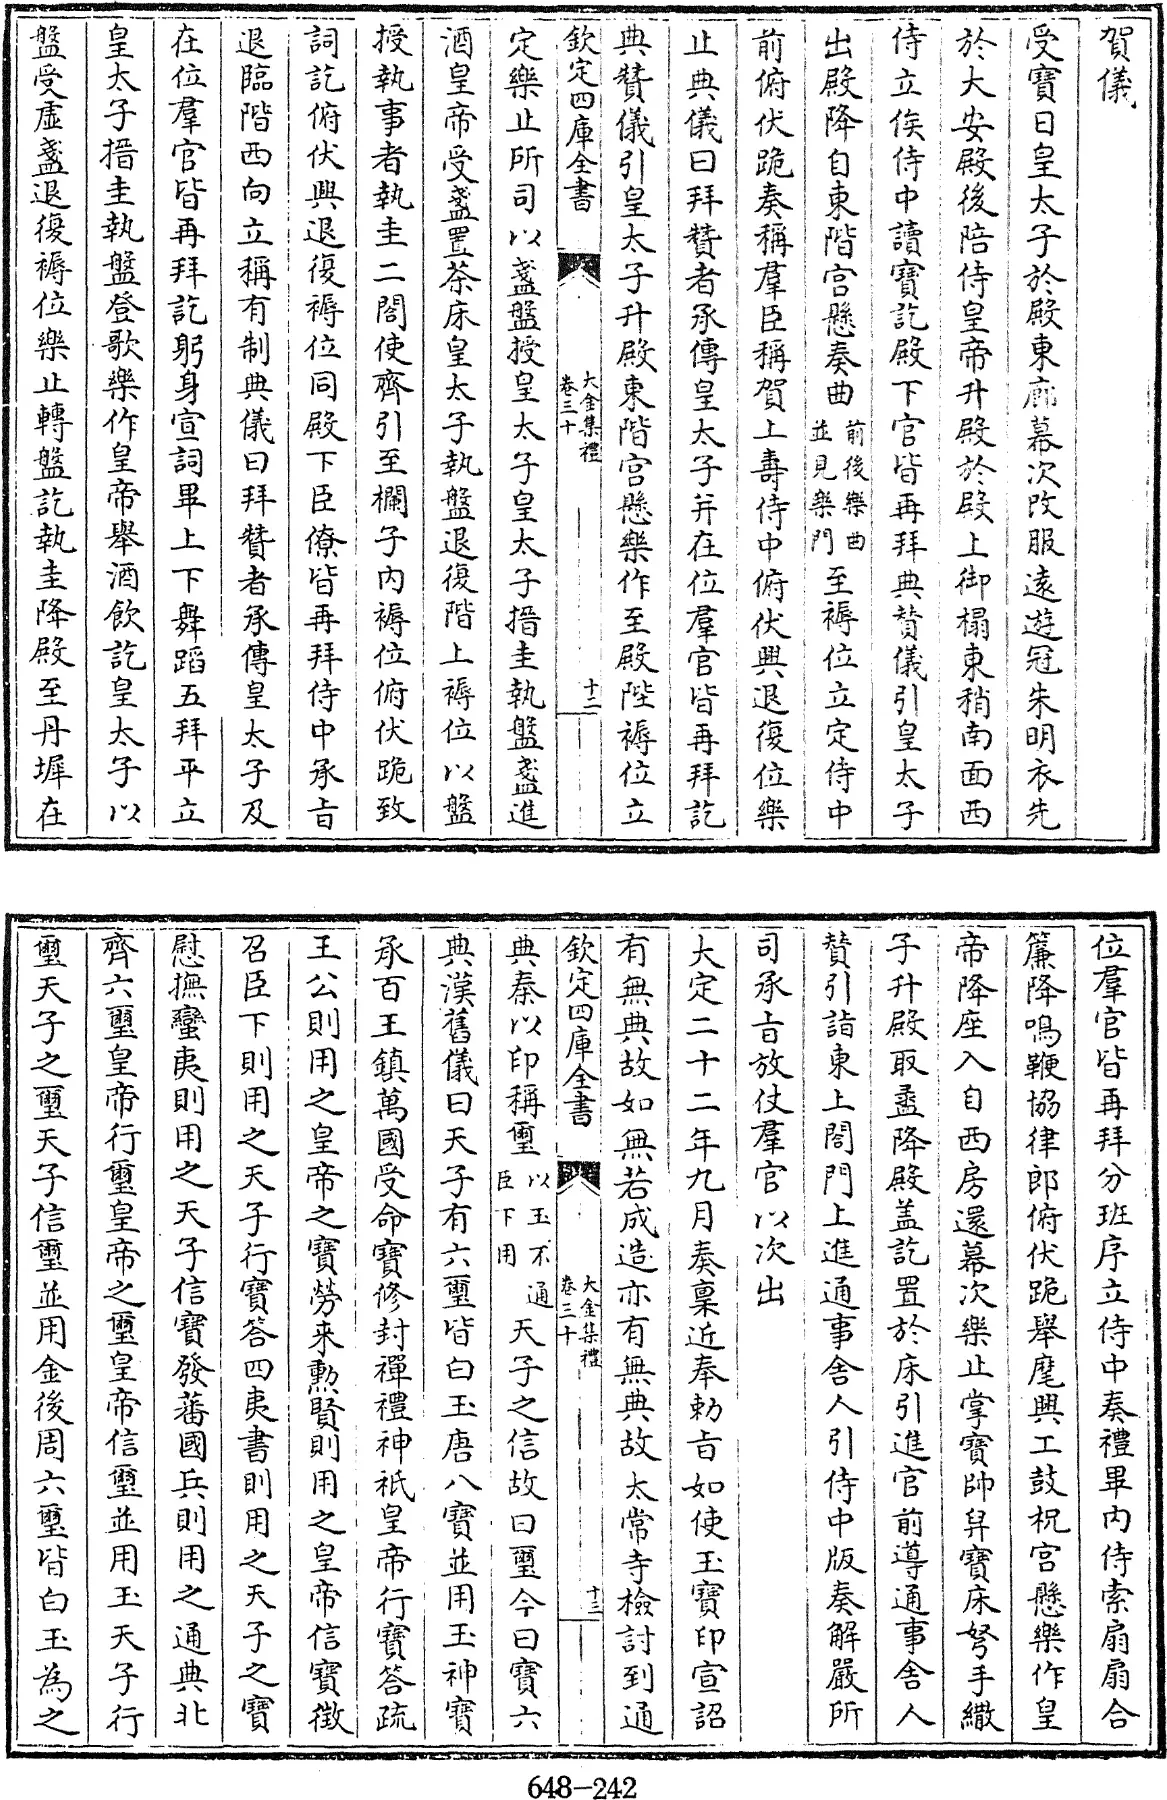 賀儀
受寶日皇太子於殿東廊幕次改服遠遊冠朱明衣先
於大安殿後陪侍皇帝升殿於殿上御榻東稍南面西
侍立俟侍中讀寶訖殿下官皆再拜典贊儀引皇太子
出殿降自東階宮懸奏曲前後樂曲並見樂門至褥位立定侍中
前俯伏跪奏稱羣臣稱賀上壽侍中俯伏興退復位樂
止典儀曰拜贊者承傳皇太子并在位羣官皆再拜訖
典贊儀引皇太子升殿東階宮懸樂作至殿陛褥位立
欽定四庫全書 大金集禮 卷三十 十二
定樂止所司以盞盤授皇太子皇太子搢圭執盤盞進
酒皇帝受盞置茶床皇太子執盤退復階上褥位以盤
授執事者執圭二閤使齊引至欄子內褥位俯伏跪致
詞訖俯伏興退復褥位同殿下臣僚皆再拜侍中承旨
退臨階西向立稱有制典儀曰拜贊者承傳皇太子及
在位羣官皆再拜訖躬身宣詞畢上下舞蹈五拜平立
皇太子搢圭執盤登歌樂作皇帝舉酒飲訖皇太子以
盤受虛盞退復褥位樂止轉盤訖執圭降殿至丹墀在
位羣官皆再拜分班序立侍中奏禮畢內侍索扇扇合
簾降鳴鞭協律郎俯伏跪舉麾興工鼓柷宮懸樂作皇
帝降座入自西房還幕次樂止掌寶帥舁寶床弩手繖
子升殿取盝降殿盖訖置於床引進官前導通事舍人
贊引詣東上閤門上進通事舍人引侍中版奏解嚴所
司承旨放仗羣官以次出
大定二十二年九月奏稟近奉勑旨如使玉寶印宣詔
有無典故如無若成造亦有無典故太常寺檢討到通
欽定四庫全書 大金集禮 卷三十 十三
典秦以印稱璽以玉不通臣下用天子之信故曰璽今曰寶六
典漢舊儀曰天子有六璽皆白玉唐八寶並用玉神寶
承百王鎮萬國受命寶修封禪禮神祇皇帝行寶答疏
王公則用之皇帝之寶勞來勲賢則用之皇帝信寶徵
召臣下則用之天子行寶答四夷書則用之天子之寶
慰撫蠻夷則用之天子信寶發蕃國兵則用之通典北
齊六璽皇帝行璽皇帝之璽皇帝信璽並用玉天子行
璽天子之璽天子信璽並用金後周六璽皆白玉為之
648-242